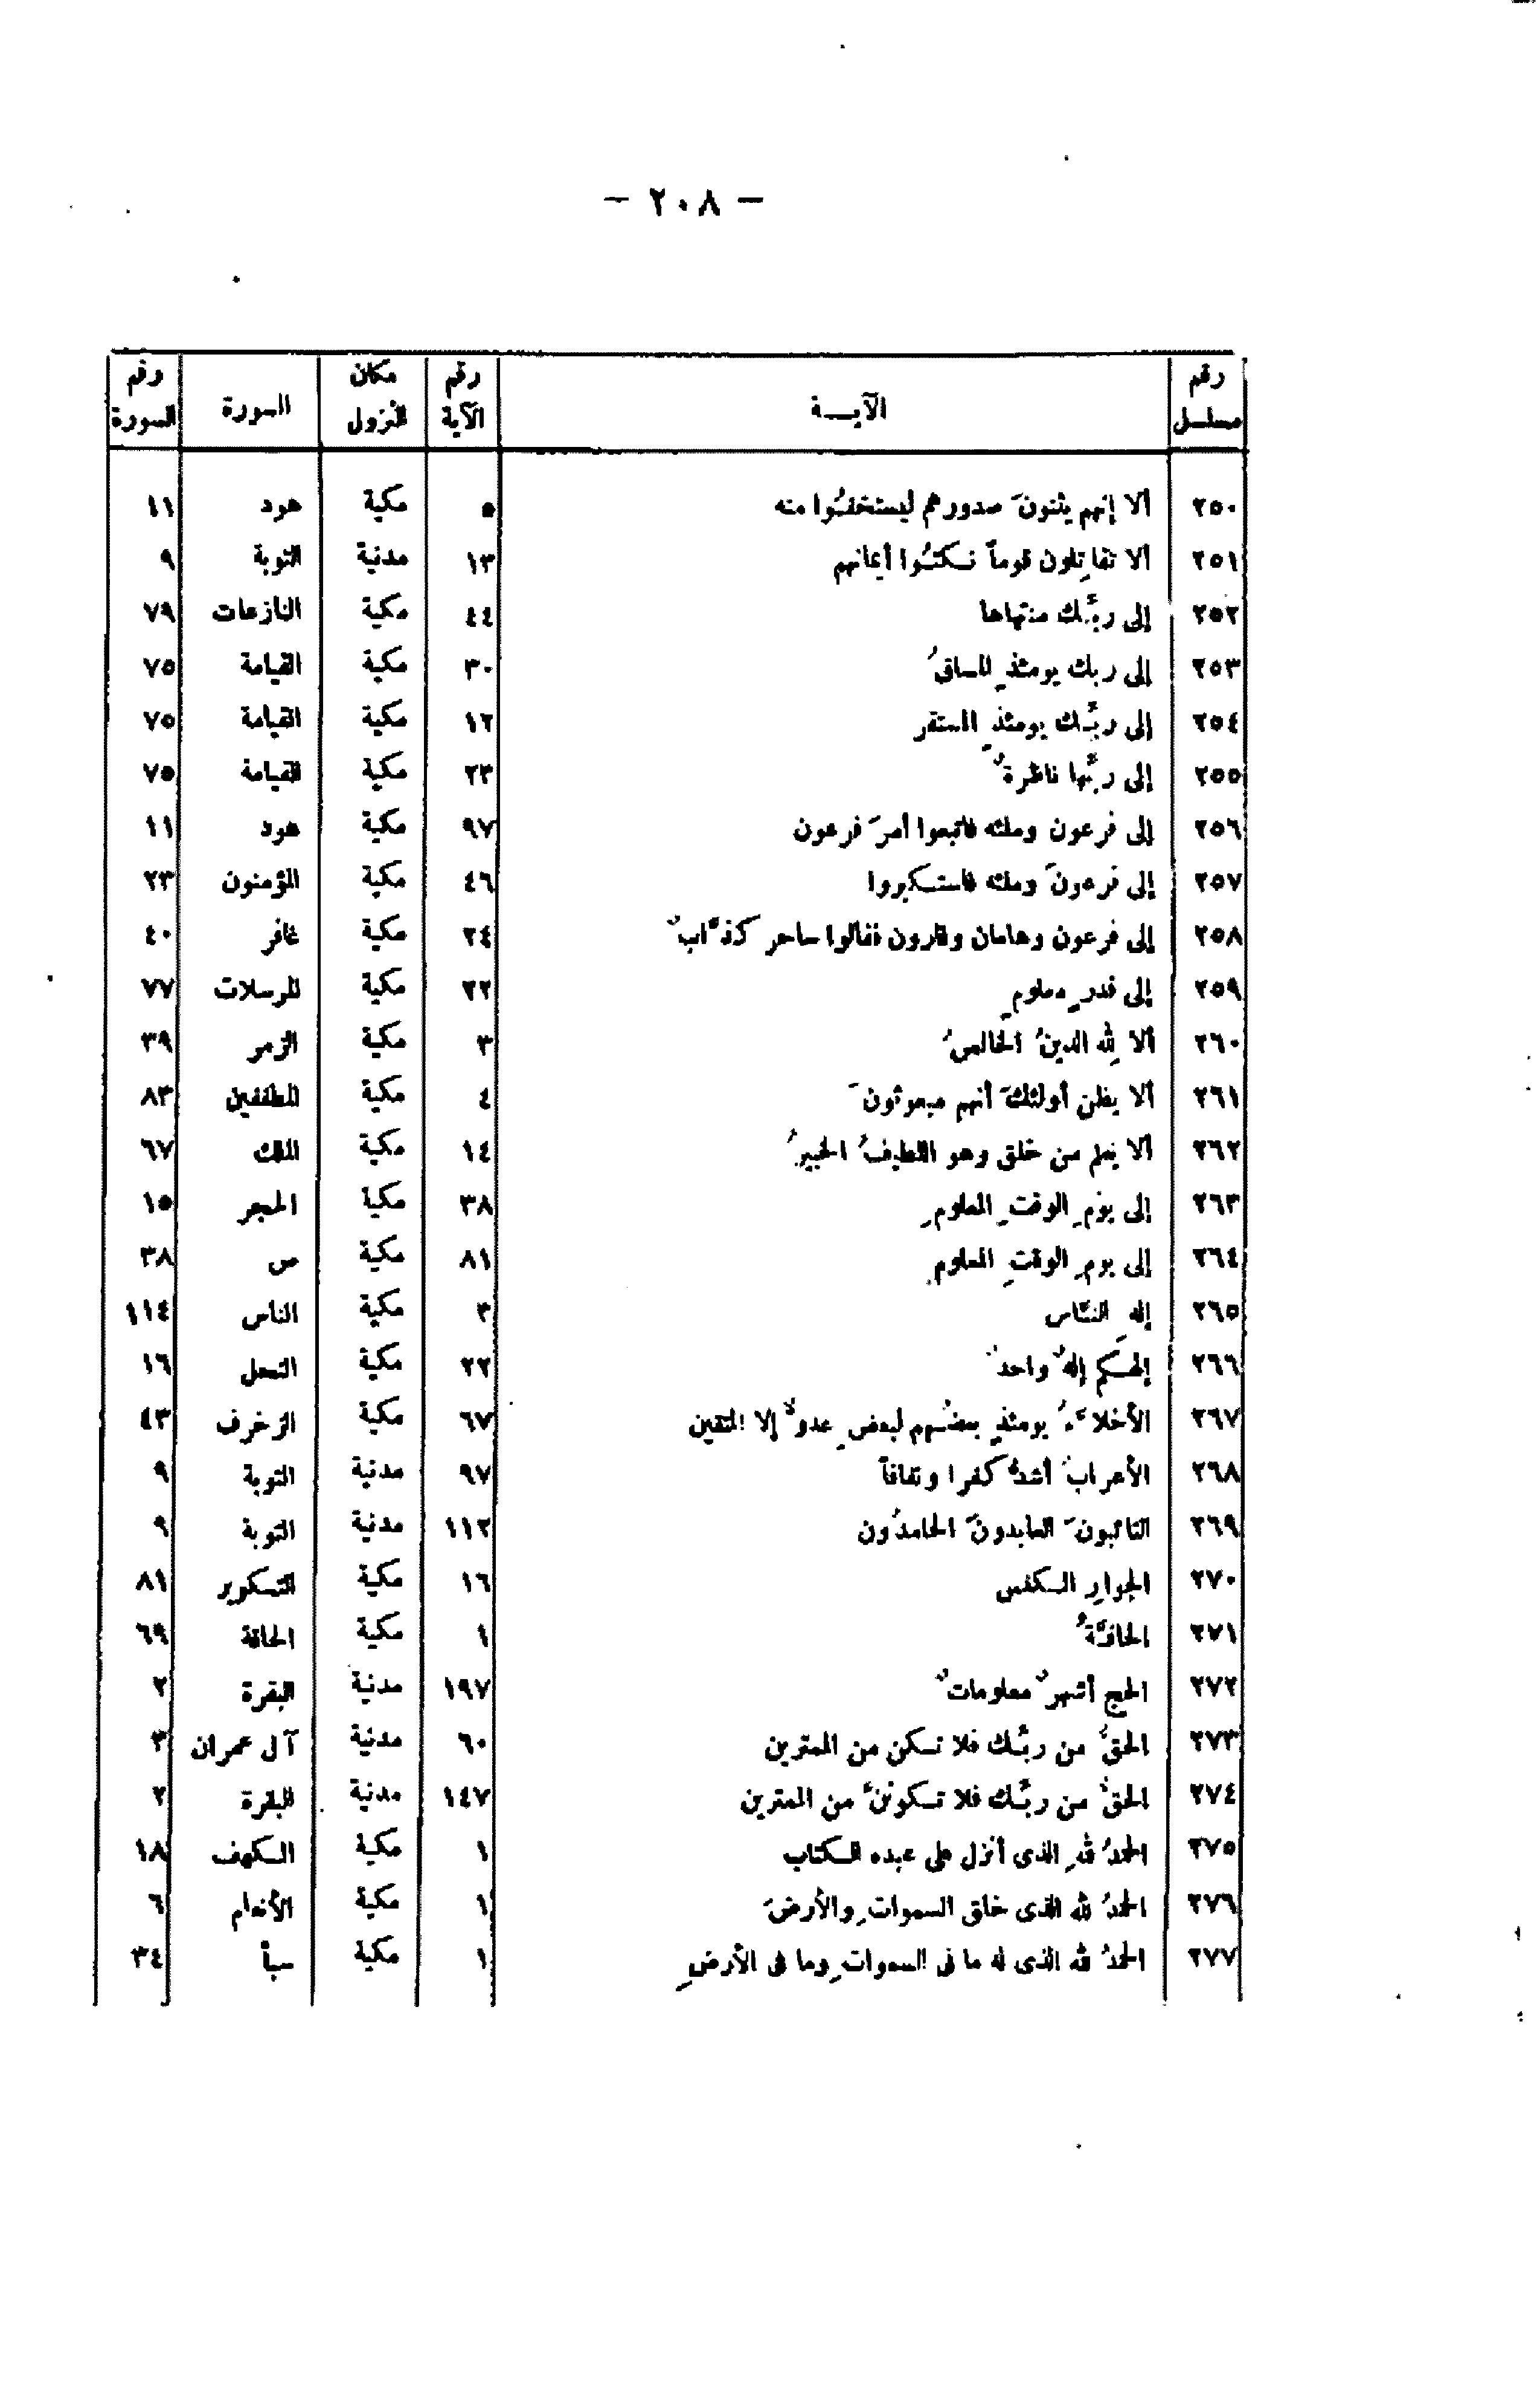 — ٢٠٨ —
رقم مسلسل | الآيـــة | رقم الآية | مكان النزول | السورة | رقم السورة
٢٥٠ ألا إنهم يثنونَ صدورهم ليستخفُوا منه ٥ مكية هود ١١
٢٥١ ألا تقاتِلون قوماً نكثُوا أيمانهم ١٣ مدنية التوبة ٩
٢٥٢ إلى ربِّك منتهاها ٤٤ مكية النازعات ٧٩
٢٥٣ إلى ربك يومئذٍ المساقُ ٣٠ مكية القيامة ٧٥
٢٥٤ إلى ربِّك يومئذٍ المستقر ١٢ مكية القيامة ٧٥
٢٥٥ إلى ربِّها ناظرةٌ ٢٣ مكية القيامة ٧٥
٢٥٦ إلى فرعون وملئه فاتبعوا أمرَ فرعون ٩٧ مكية هود ١١
٢٥٧ إلى فرعونَ وملئه فاستكبروا ٤٦ مكية المؤمنون ٢٣
٢٥٨ إلى فرعون وهامان وقارون فقالوا ساحر كذَّابٌ ٢٤ مكية غافر ٤٠
٢٥٩ إلى قدرٍ معلومٍ ٢٢ مكية المرسلات ٧٧
٢٦٠ ألا لِله الدينُ الخالصُ ٣ مكية الزمر ٣٩
٢٦١ ألا يظن أولئكَ أنهم مبعوثونَ ٤ مكية المطففين ٨٣
٢٦٢ ألا يعلم من خلق وهو اللطيفُ الخبيرُ ١٤ مكية الملك ٦٧
٢٦٣ إلى يومِ الوقتِ المعلومِ ٣٨ مكية الحجر ١٥
٢٦٤ إلى يومِ الوقتِ المعلومِ ٨١ مكية ص ٣٨
٢٦٥ إله النَّاس ٣ مكية الناس ١١٤
٢٦٦ إلهَكم إلهٌ واحدٌ ٢٢ مكية النحل ١٦
٢٦٧ الأخلاَّءُ يومئذٍ بعضُهم لبعضٍ عدوٌ إلا المتقين ٦٧ مكية الزخرف ٤٣
٢٦٨ الأعرابُ أشدُّ كفرا ونفاقاً ٩٧ مدنية التوبة ٩
٢٦٩ التائبونَ العابدونَ الحامدُون ١١٢ مدنية التوبة ٩
٢٧٠ الجوارِ الكنس ١٦ مكية التكوير ٨١
٢٧١ الحاقَّةُ ١ مكية الحاقة ٦٩
٢٧٢ الحج أشهرٌ معلوماتٌ ١٩٧ مدنية البقرة ٢
٢٧٣ الحقُّ من ربِّك فلا تكن من الممترين ٦٠ مدنية آل عمران ٣
٢٧٤ الحقُّ من ربِّك فلا تكونَنَّ من الممترين ١٤٧ مدنية البقرة ٢
٢٧٥ الحمدُ للهِ الذى أنزل على عبده الكتاب ١ مكية الكهف ١٨
٢٧٦ الحمدُ لله الذى خلق السمواتِ والأرضَ ١ مكية الأنعام ٦
٢٧٧ الحمدُ لله الذى له ما فى السمواتِ وما فى الأرضِ ١ مكية سبأ ٣٤